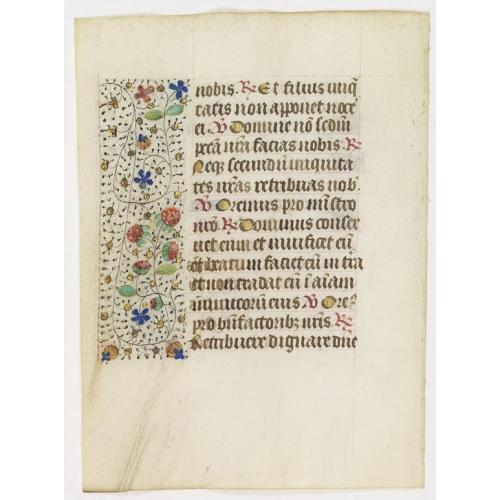 nobis. R Et filius iniq̄
tatis non apponet noce
ei V Domine nō sedm̄
pcā nr̄a facias nobis. R
Neq; secundū iniquita
tes nr̄as retribuas nob̄.
V Oremus pro ministro
nr̄o. R Dominus conser
uet eum et viuificet eū
et beatum faciet eū in tr̄a
et non tradat eū ī aīam
inimicorū eius V Ore⁹
pro bn̄factorib; nr̄is. R
Retribuere dignare dn̄e